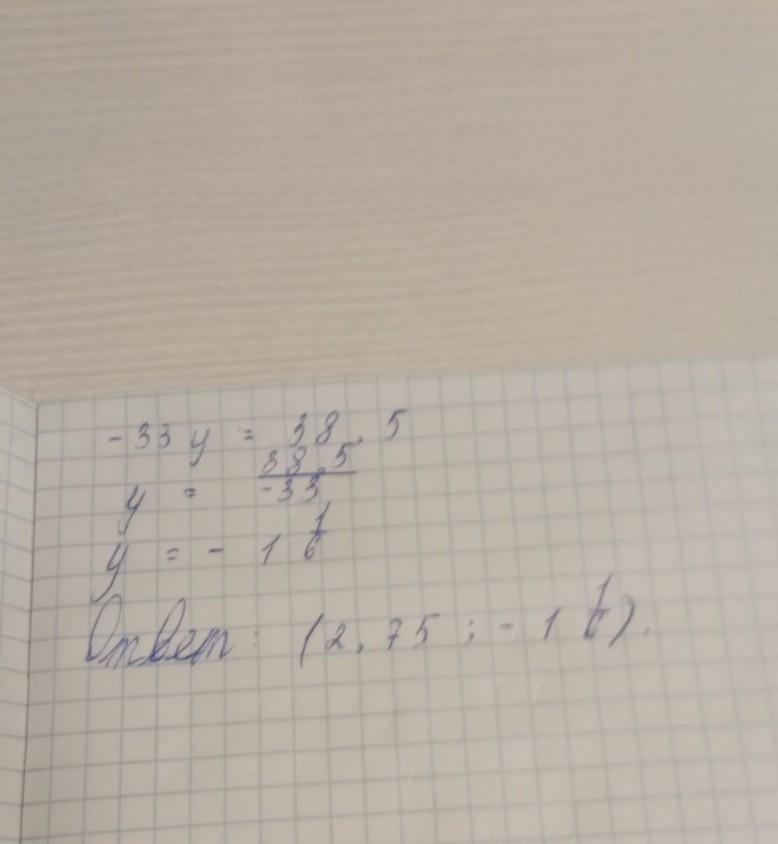 -33y = 38,5
y = 38,5/-33
y = - 1 1/6
Ответ: (2,75 ; - 1 1/6).